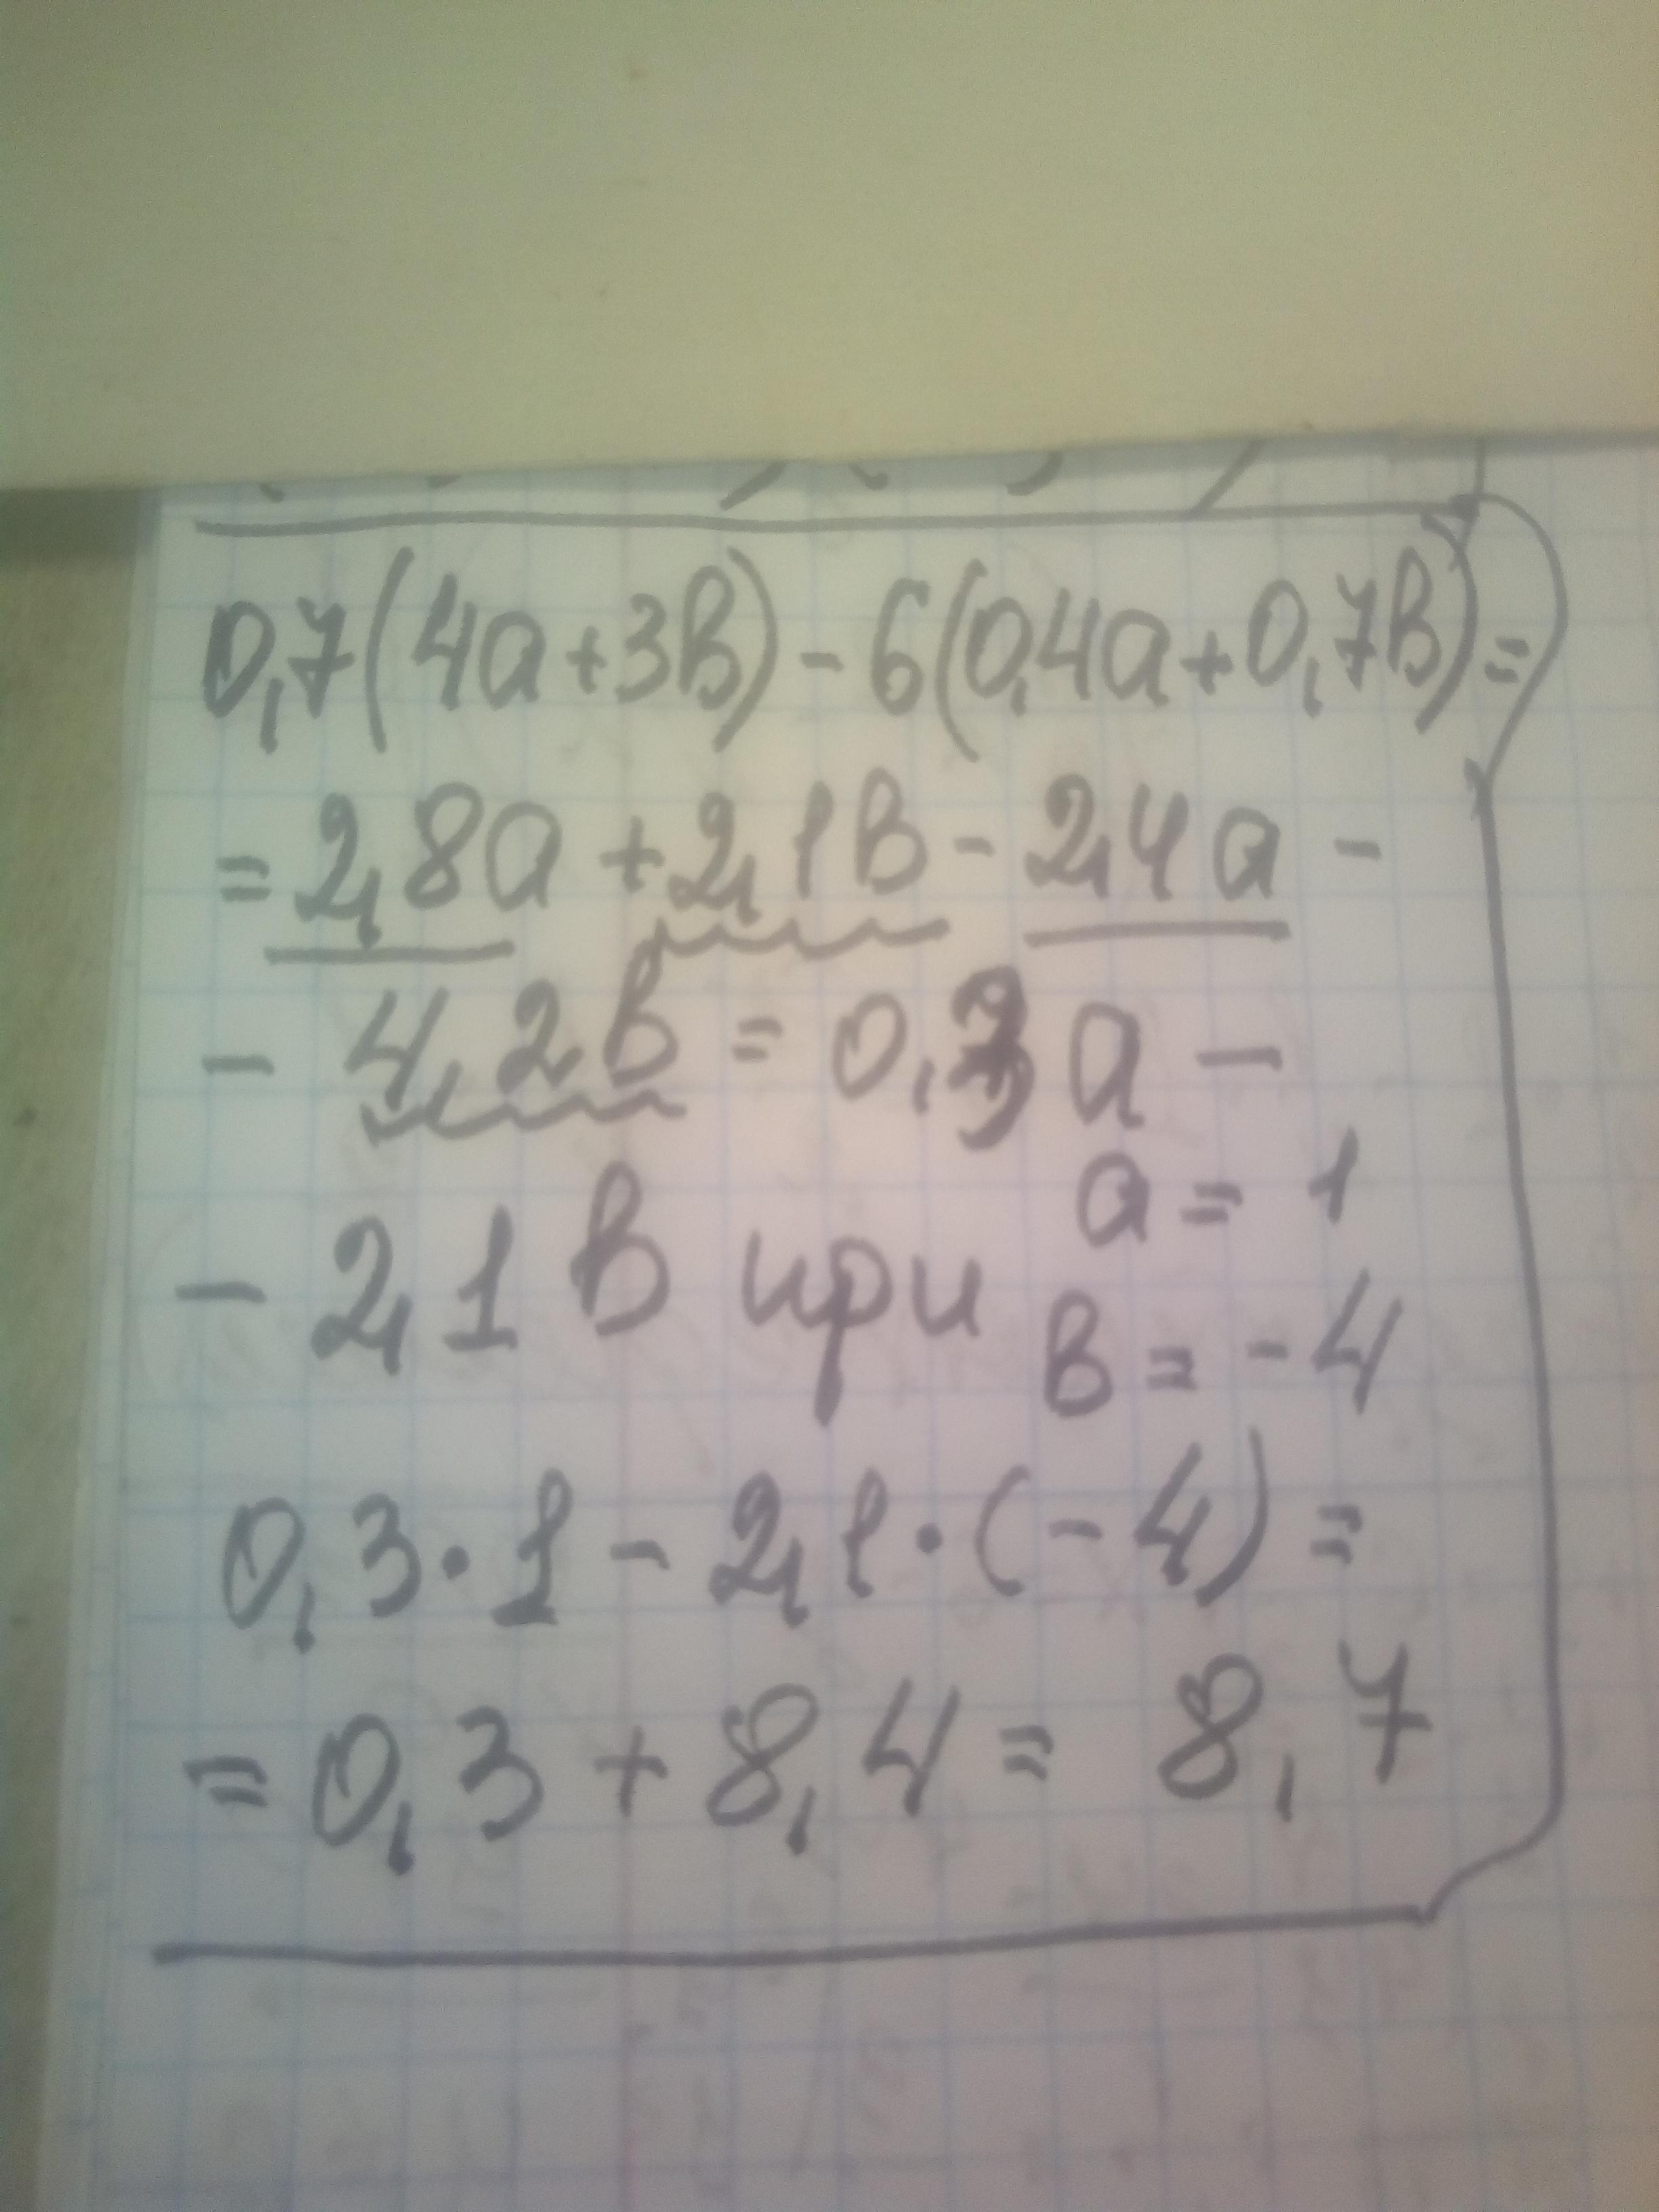 0,7(4a+3в)-6(0,4a+0,7в)=
=2,8a+2,1в-2,4a-
-4,2в=0,3a-
-2,1в при a=1
в=-4
0,3·1-2,1·(-4)=
=0,3+8,4=8,7